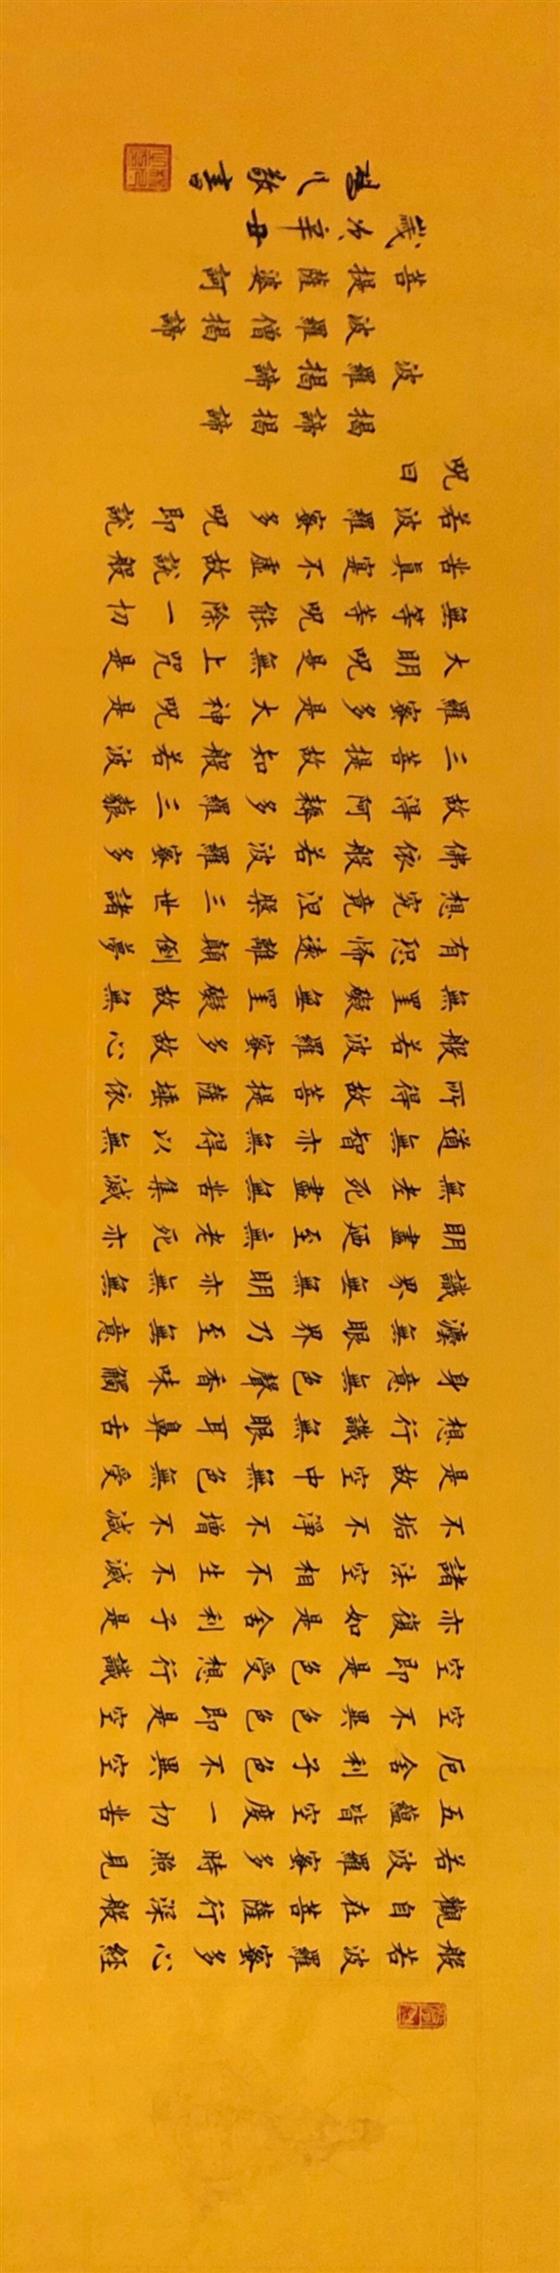 般若波羅蜜多心經
觀自在菩薩行深般
若波羅蜜多時照見
五蘊皆空度一切苦
厄舍利子色不異空
空不異色色即是空
空即是色受想行識
亦復如是舍利子是
諸法空相不生不滅
不垢不淨不增不減
是故空中無色無受
想行識無眼耳鼻舌
身意無色聲香味觸
法無眼界乃至無意
識界無無明亦無無
明盡廼至無老死亦
無老死盡無苦集滅
道無智亦無得以無
所得故菩提薩埵依
般若波羅蜜多故心
無罣礙無罣礙故無
有恐怖遠離顛倒夢
想究竟涅槃三世諸
佛依般若波羅蜜多
故得阿耨多羅三藐
三菩提故知般若波
羅蜜多是大神呪是
大明呪是無上咒是
無等等呪能除一切
苦真寔不虛故說般
若波羅蜜多呪即說
呪曰
揭諦揭諦
波羅揭諦
波羅僧揭諦
菩提薩婆訶
歲次辛丑
凡敬書